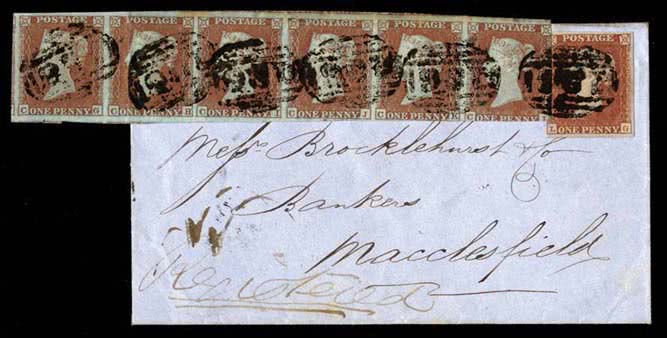 POSTAGE POSTAGE POSTAGE POSTAGE POSTAGE POSTAGE POSTAGE
C ONE PENNY G C ONE PENNY H C ONE PENNY I C ONE PENNY J C ONE PENNY K C ONE PENNY L ONE PENNY G
Messrs Brocklehurst & Co
Bankers
Macclesfield
Registered